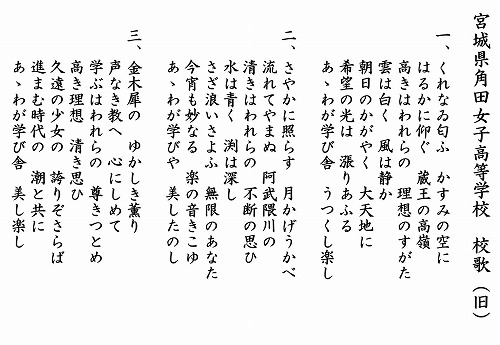 宮城県角田女子高等学校　校歌（旧）
一、くれなゐ匂ふ　かすみの空に
はるかに仰ぐ　蔵王の高嶺
高きはわれらの　理想のすがた
雲は白く　風は静か
朝日のかがやく　大天地に
希望の光は　漲りあふる
あゝわが学び舎　うつくし楽し
二、さやかに照らす　月かげうかべ
流れてやまぬ　阿武隈川の
清きはわれらの　不断の思ひ
水は青く　渕は深し
さざ浪いさよふ　無限のあなた
今宵も妙なる　楽の音きこゆ
あゝわが学びや　美したのし
三、金木犀の　ゆかしき薫り
声なき教へ　心にしめて
学ぶはわれらの　尊きつとめ
高き理想　清き思ひ
久遠の少女の　誇りぞさらば
進まむ時代の　潮と共に
あゝわが学び舎　美し楽し